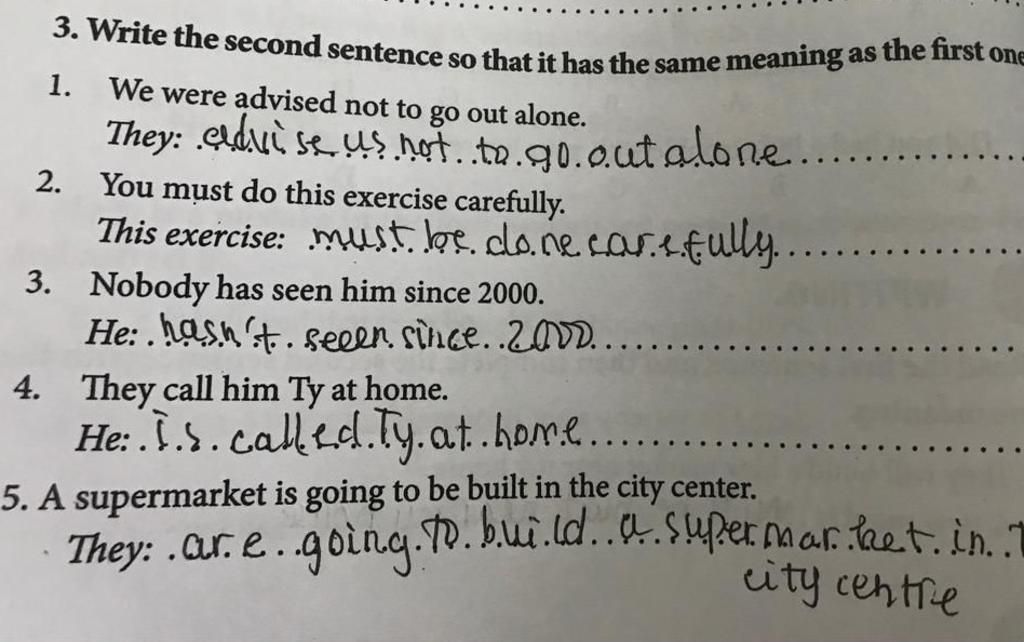 3. Write the second sentence so that it has the same meaning as the first one
1. We were advised not to go out alone.
They: advise us not to go out alone
2. You must do this exercise carefully.
This exercise: must be done carefully
3. Nobody has seen him since 2000.
He: hasn't seeen since 2000
4. They call him Ty at home.
He: Is called Ty at home
5. A supermarket is going to be built in the city center.
They: are going To build a supermarket in
city centre